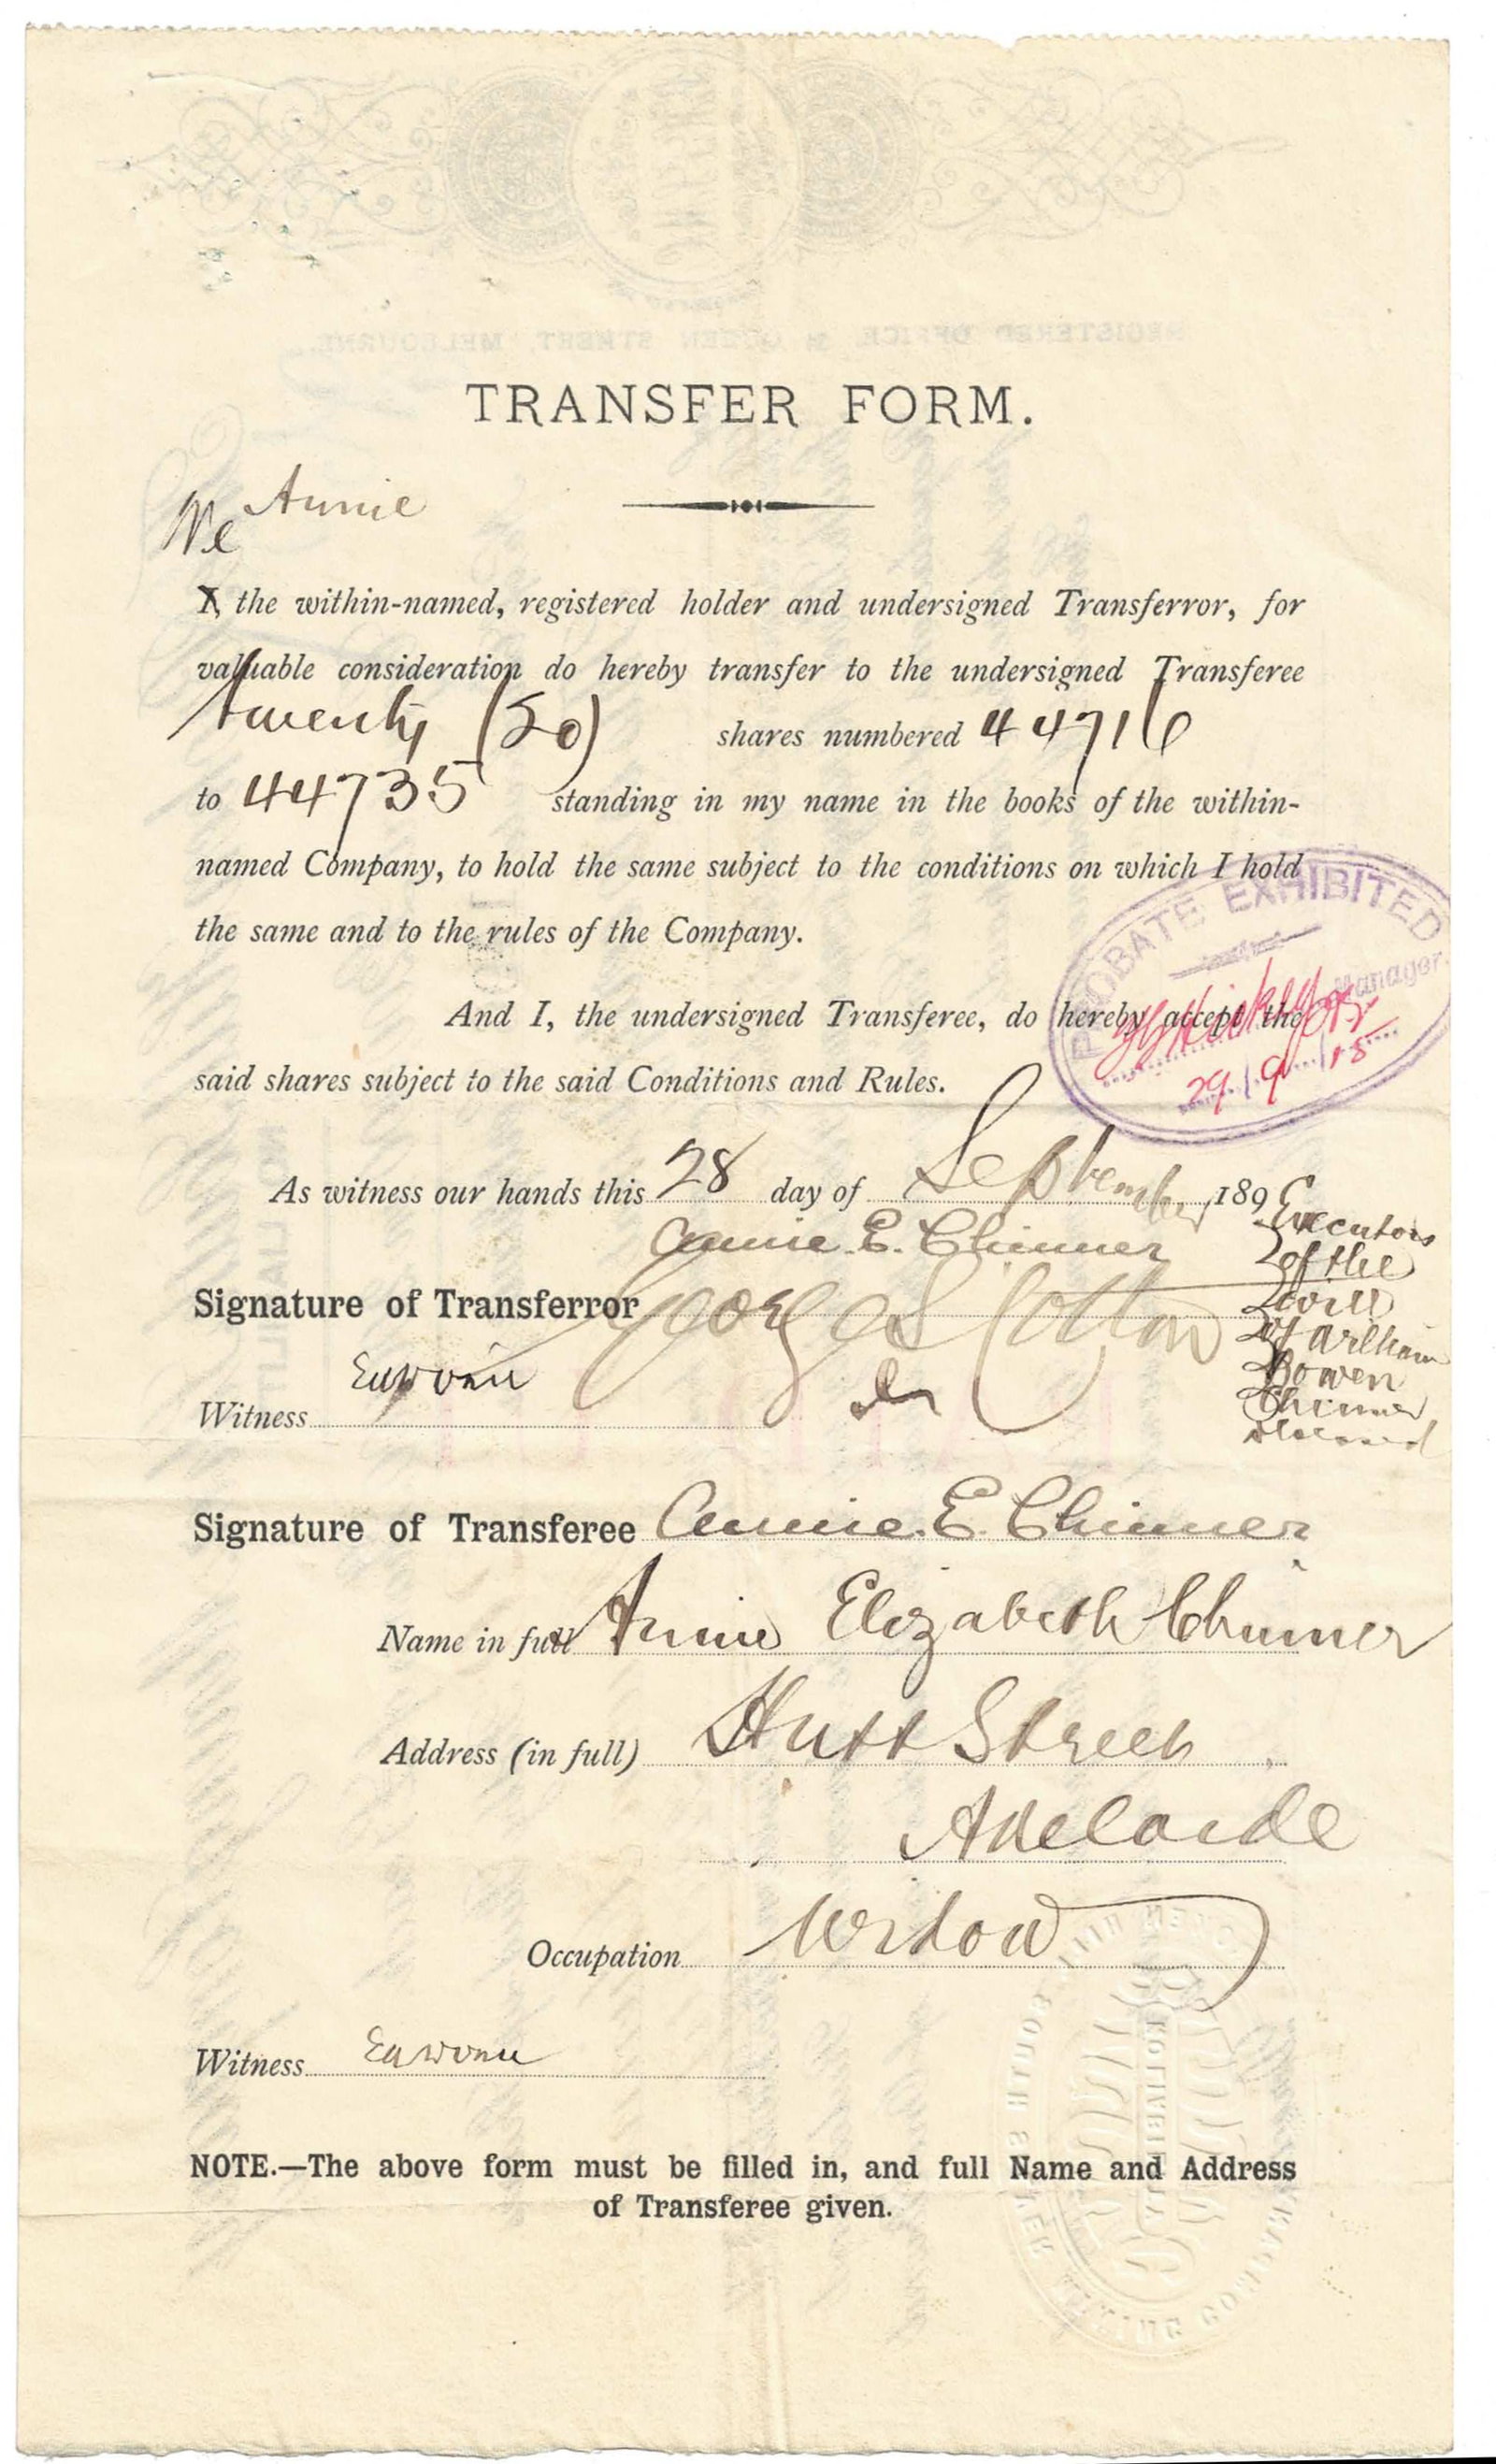 TRANSFER FORM.
We Annie
I, the within-named, registered holder and undersigned Transferror, for
valuable consideration do hereby transfer to the undersigned Transferee
twenty (20) shares numbered 44716
to 44735 standing in my name in the books of the within-
named Company, to hold the same subject to the conditions on which I hold
the same and to the rules of the Company.
PROBATE EXHIBITED
Manager.
29/9/15
And I, the undersigned Transferee, do hereby accept the
said shares subject to the said Conditions and Rules.
As witness our hands this 28 day of September 189
Annie. E. Chinner
Signature of Transferror George S Cotton
Executors
of the
will
of William
Bowen
Chinner
deceased
Witness
Signature of Transferee Annie. E. Chinner
Name in full Annie Elizabeth Chinner
Address (in full) Hutt Street
Adelaide
Occupation Widow
Witness
NOTE.—The above form must be filled in, and full Name and Address
of Transferee given.